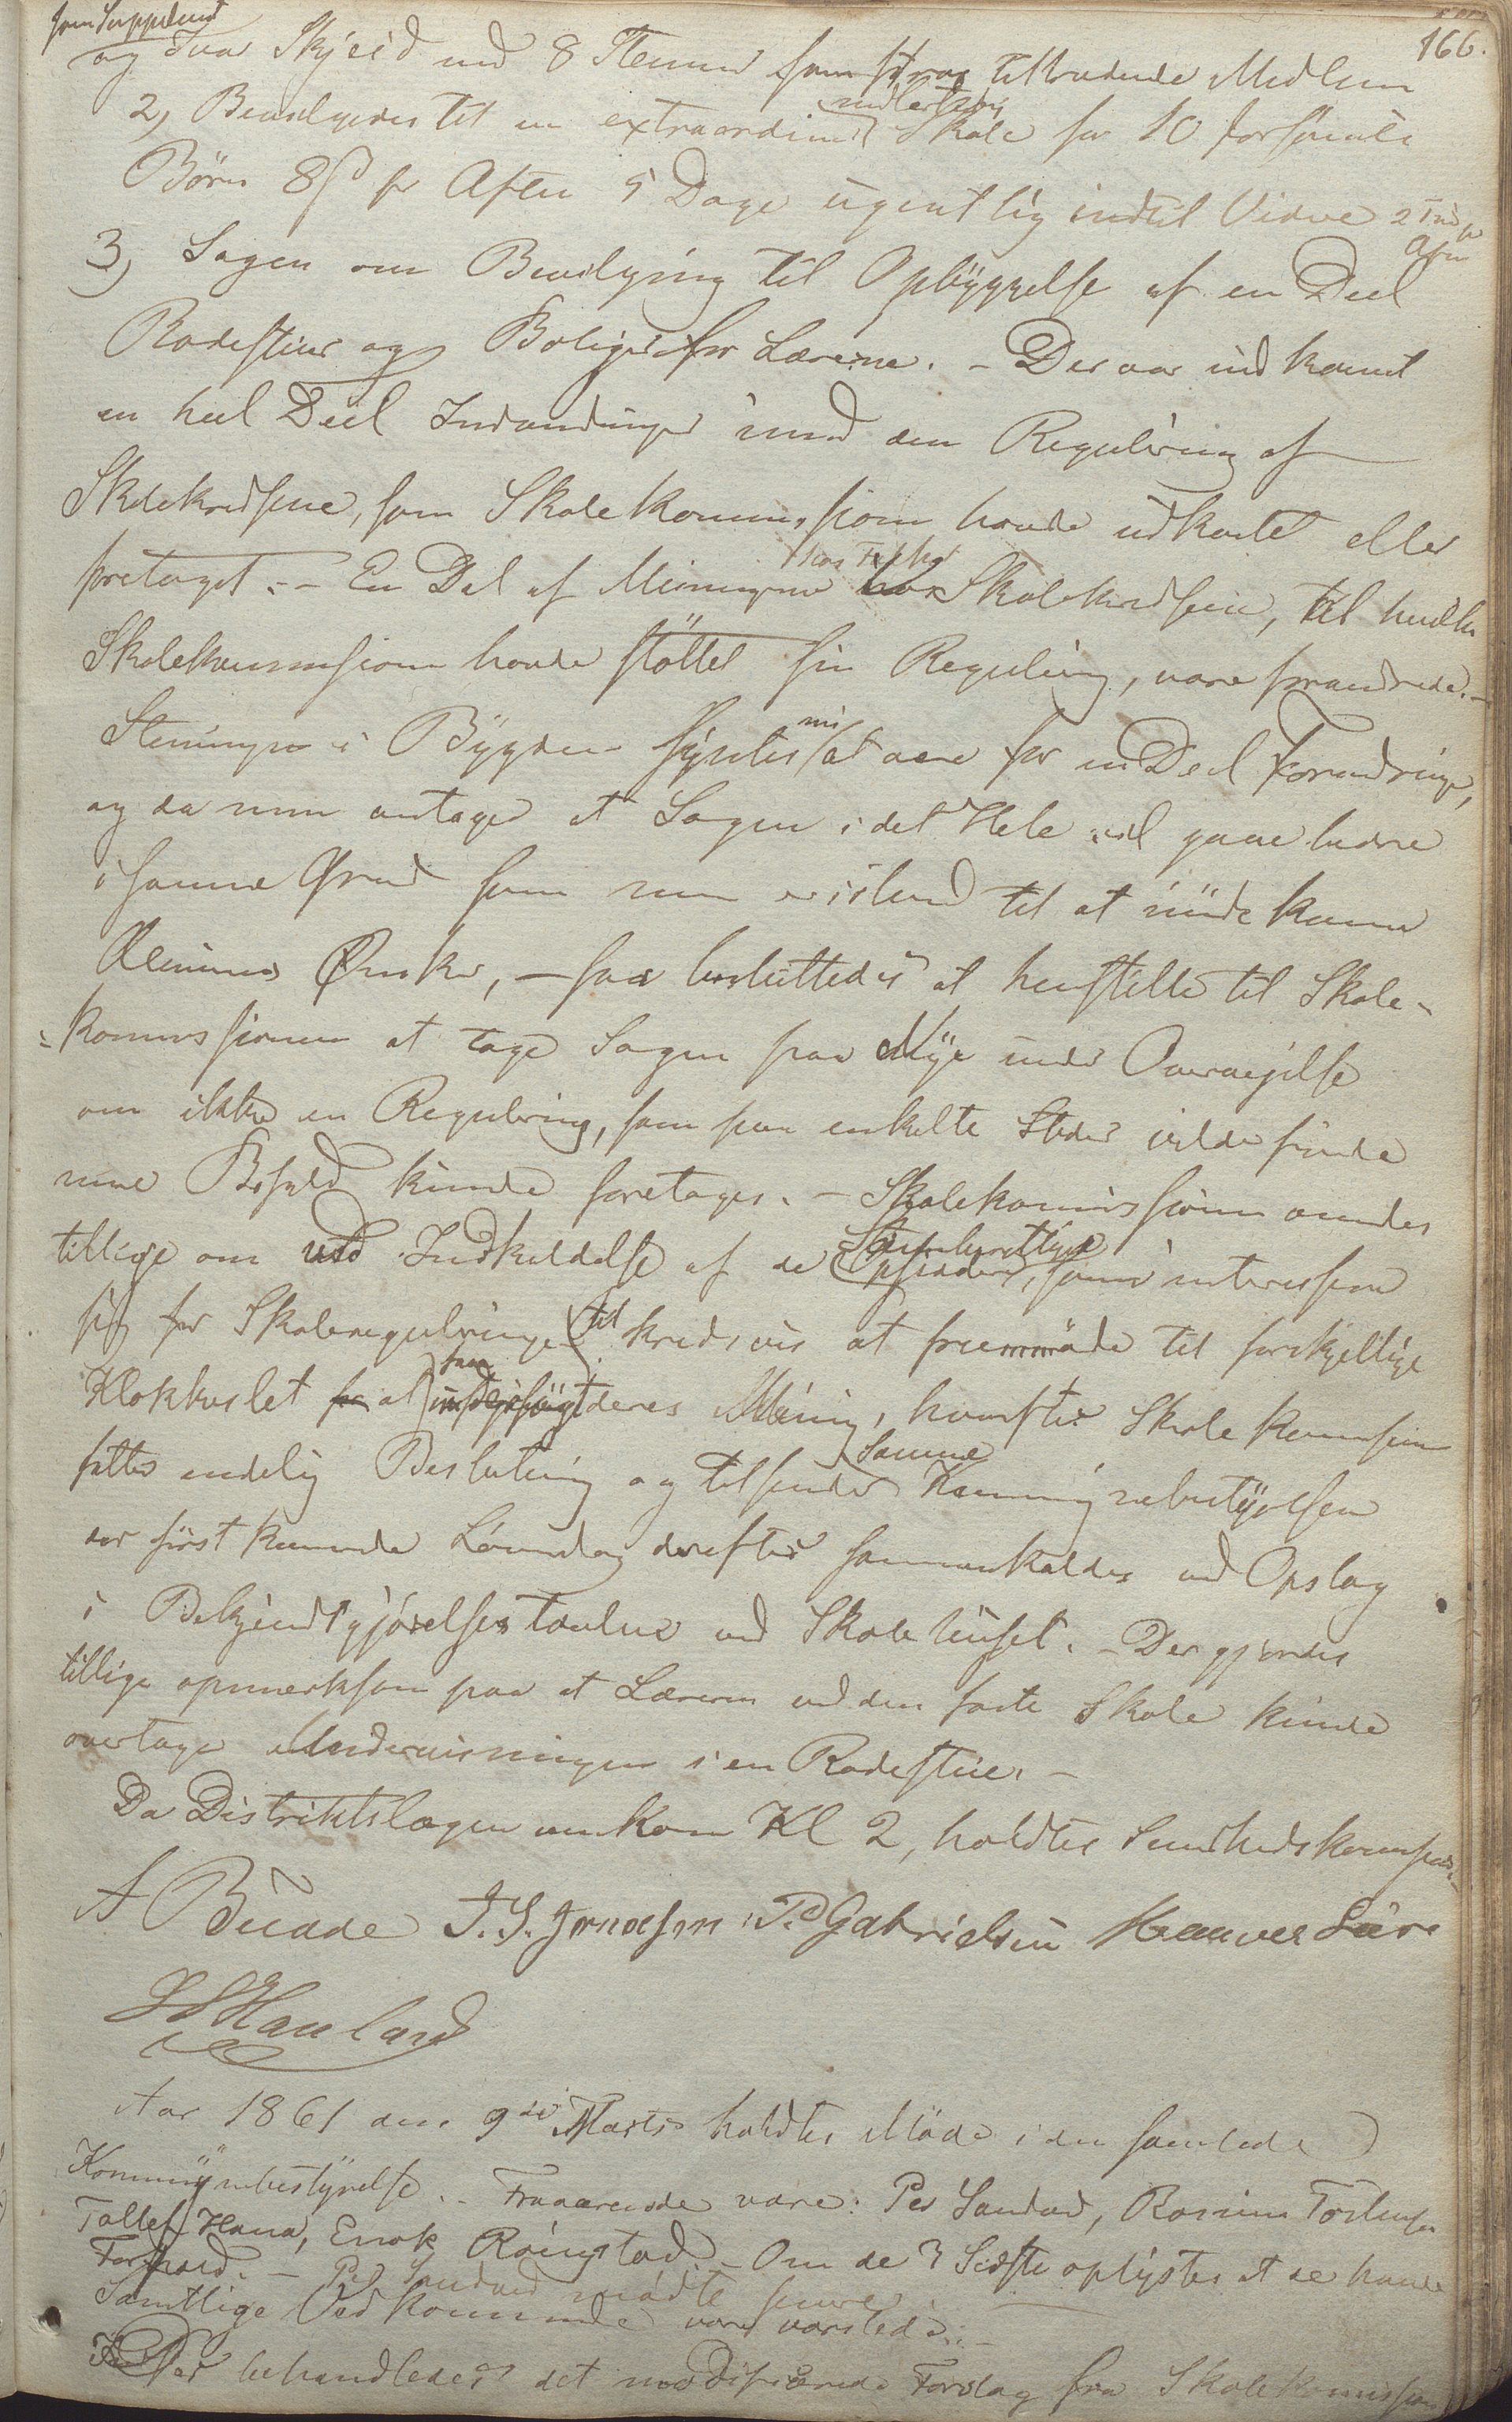 166.
som Suppleant
og Ivar Skjeid med 8 Stemmer som strax tiltrædende Medlem
midlertidig
2, Bevilgedes til en extraordinær Skole for 10 forsømte
Børn 8 ß pr Aften 5 Dage ugentlig indtil Videre 2 Tim pr
Aften
3, Sagen om Bevilgning til Opbyggelse af en Deel
Rodestuer og Boliger for Lærerne. - Der var indkommet
en heel Deel Indvendinger imod den Regulering af
Skolekredsene, som Skolekommissionen havde udkastet eller
foretaget. - En Del af Meningerne hos Skolekredsene, til hvilke
Skolekommissionen havde støttet sin Regulering, vare forandrede. -
nu
Stemningen i Bygden syntes at være for en Deel Forandringer,
og da man antager at Sagen i det Hele vil gaae bedre
i samme Grad som man er istand til at imødekomme
Almuens Ønsker, - saa besluttedes at henstille til Skole-
kommissionen at tage Sagen paa Nye under Overveielse
om ikke en Regulering, som paa enkelte Steder vilde finde
mere Bifald kunde foretages. - Skolekommissionen anmodes
Stemmeberettigede
tillige om ved Indkaldelse af de Opsiddere, som interessere
sig for Skolereguleringen til kredsviis at fremmøde til forskjellige
Klokkeslet for at deres Mening, hvorefter Skolekommissionen
Samme
fatter endelig Beslutning og tilsender Kommunebestyrelsen
der først kommende Løverdag derefter sammenkaldes ved Opslag
i Bekjendtgjørelsestavlen ved Skolehuset. - Der gjordes
tillige opmærksom paa at Læreren ved den faste Skole kunde
overtage Underviisningen i en Rodestue. -
Da Distriktslægen ankom Kl 2, holdtes Sundhedskommission
A Buade J. S. Jonassen P. Gabrielsen Haaver Lure
Hauland
Aar 1861 den 9de Marts holdtes Møde i den samlede
Kommunebestyrelse. - Fraværende vare: Per Sandved, Rasmus Torkelsen
Tollef Hana, Enok Røingstad. - Om de 3 Sidste oplystes at de havde
Forfald. - Per Sandved mødte senere.
Samtlige Vedkommende vare varslede. -
Der behandledes det modificerede Forslag fra Skolekommission